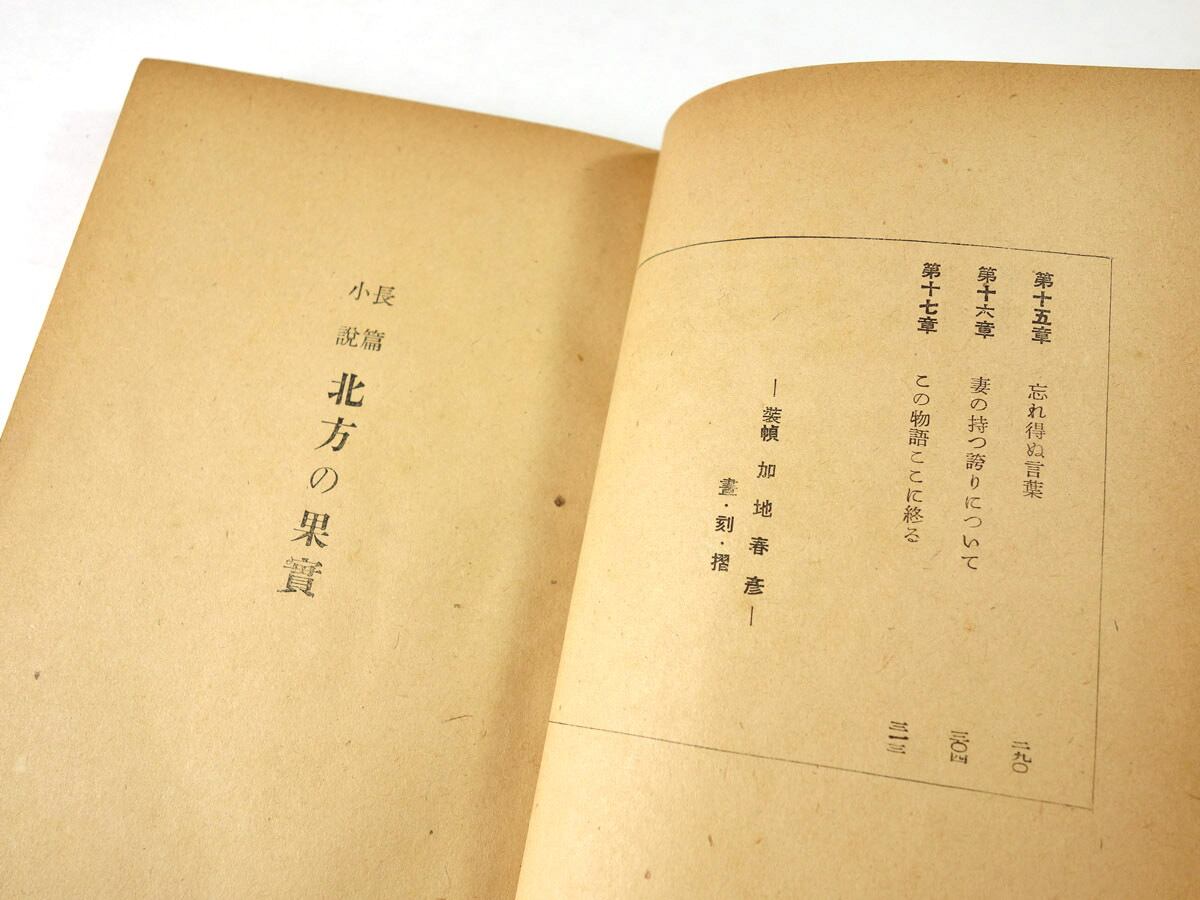 第十五章 忘れ得ぬ言葉 二九〇
第十六章 妻の持つ誇りについて 三〇四
第十七章 この物語ここに終る 三一三
―装幀 加地春彦―
畫・刻・摺
長篇
小說
北方の果實